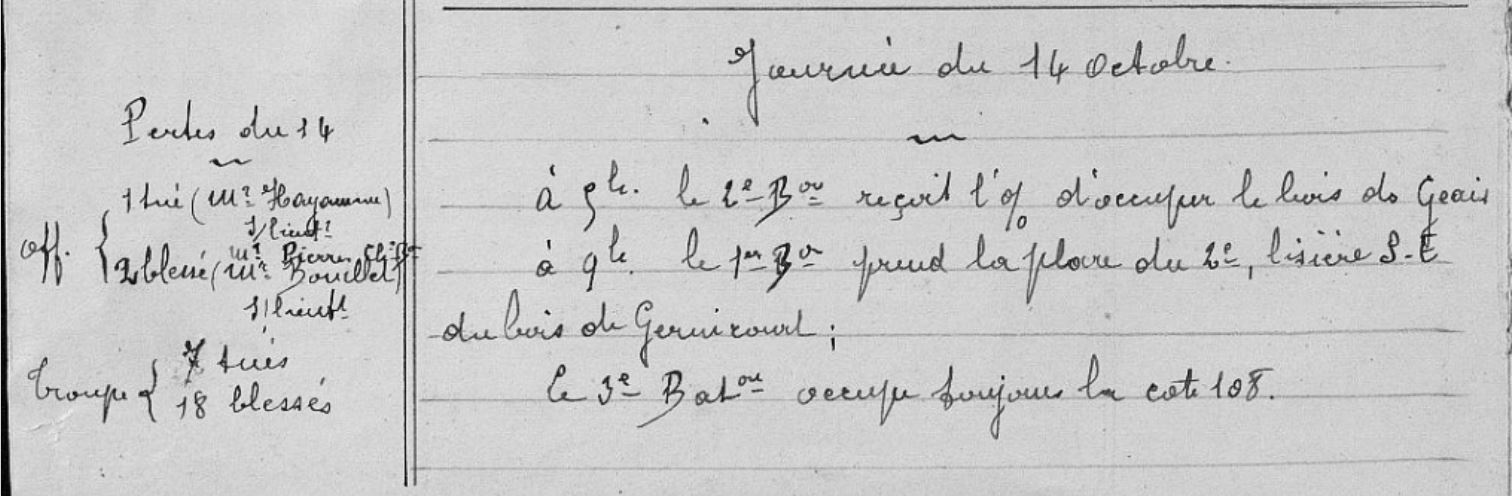 Journée du 14 Octobre.
Pertes du 14
Off. { 1 tué (Mr Hayamme)
S/lieutt
2 blessé (Mr Pierre, Ch. Bon
Mr Bouillet)
S/lieutt
Troupe { 7 tués
18 blessés
à 5h. le 2e Bon reçoit l'o/ d'occuper le bois des Geais
à 9h. le 1er Bon prend la place du 2e, lisière S-E
du bois de Gernicourt;
Le 3e Baton occupe toujours la cote 108.